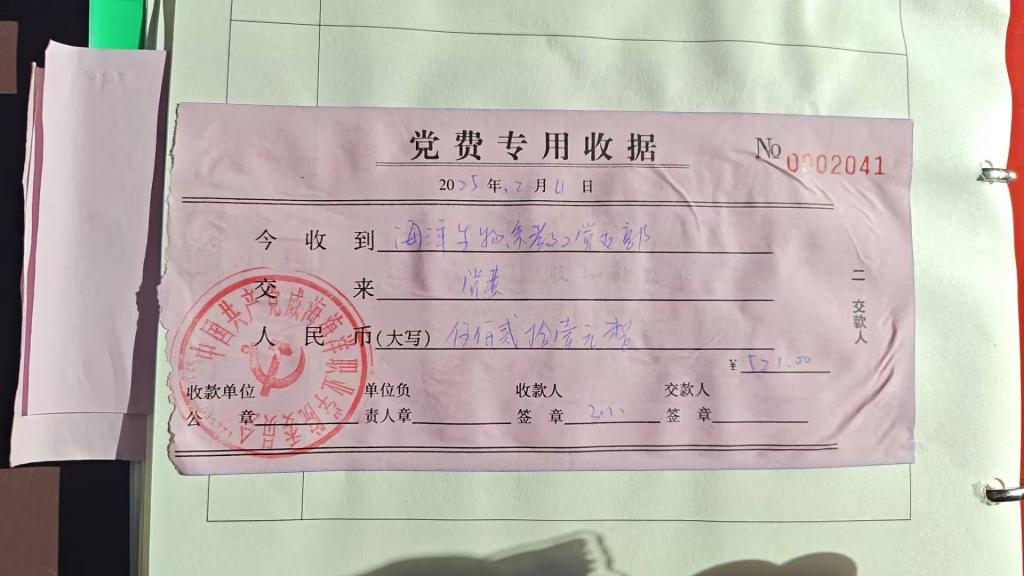 党费专用收据
№ 0002041
2025年2月11日
今收到 海洋生物系教工党支部
交来 党费
人民币(大写) 伍佰贰拾壹元整
¥ 521.00
二 交款人
收款单位 单位负 收款人 交款人
公章 责人章 签章 签章
中国共产党威海海洋职业学院委员会